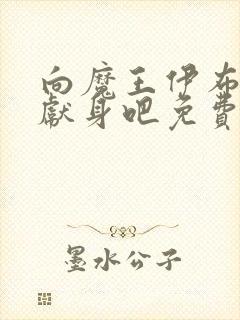 向魔王伊布
献身吧免费
墨水公子